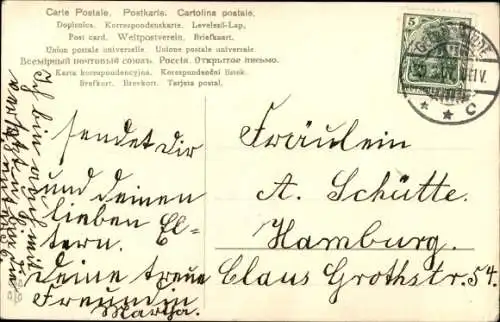 Carte Postale. Postkarte. Cartolina postale.
Dopisnica. Korrespondenskarte. Levelező-Lap,
Post card. Weltpostverein. Briefkaart.
Union postale universelle. Unione postale universale.
Всемірный почтовый союзъ. Россія. Открытое письмо.
Karta korrespondencyjna. Korespondenční lístek.
Brefkort. Brevkort. Tarjeta postal.
5
C
sendet dir
und deinen
lieben El=
tern.
Deine treue
Freundin
Martha.
Ich bin
Fräulein
A. Schütte.
Hamburg.
Claus Grothstr. 54.